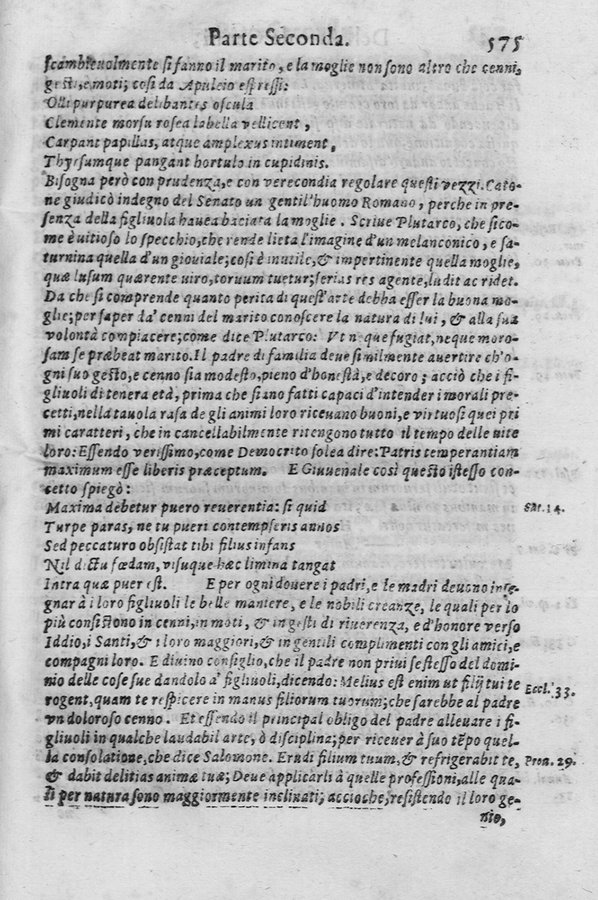 Parte Seconda. 575
scambieuolmente si fanno il marito, e la moglie non sono altro che cenni,
gesti, e moti; cosi da Apuleio espressi:
Olli purpurea delibantes oscula
Clemente morsu rosea labella vellicent,
Carpant papillas, atque amplexus intiment,
Thyrsumque pangant hortulo in cupidinis.
Bisogna però con prudenza, e con verecondia regolare questi vezzi. Cato-
ne giudicò indegno del Senato un gentil'huomo Romano, perche in pre-
senza della figliuola hauea baciata la moglie. Scriue Plutarco, che sico-
me è uitioso lo specchio, che rende lieta l'imagine d'un melanconico, e sa-
turnina quella d'un giouiale; così è inutile, & impertinente quella moglie,
quæ lusum quærente uiro, toruum tuetur; serias res agente, ludit ac ridet.
Da che si comprende quanto perita di quest'arte debba esser la buona mo-
glie; per saper da' cenni del marito conoscere la natura di lui, & alla sua
volontà compiacere; come dite Plutarco: Vt neque fugiat, neque moro-
sam se præbeat marito. Il padre di familia deue similmente auertire ch'o-
gni suo gesto, e cenno sia modesto, pieno d'honestà, e decoro; acciò che i fi-
gliuoli di tenera età, prima che siano fatti capaci d'intender i morali pre-
cetti, nella tauola rasa de gli animi loro riceuano buoni, e virtuosi quei pri
mi caratteri, che in cancellabilmente ritengono tutto il tempo delle uite
loro: Essendo verissimo, come Democrito solea dire: Patris temperantiam
maximum esse liberis præceptum. E Giuuenale così questo istesso con-
cetto spiegò:
Maxima debetur puero reuerentia: si quid Sat. 14.
Turpe paras, ne tu pueri contempseris annos
Sed peccaturo obsistat tibi filius infans
Nil dictu fœdam, visuque hæc limina tangat
Intra quæ puer est. E per ogni douere i padri, e le madri deuono inse-
gnar à i loro figliuoli le belle maniere, e le nobili creanze, le quali per lo
più consistono in cenni, in moti, & in gesti di riuerenza, e d'honore verso
Iddio, i Santi, & i loro maggiori, & in gentili complimenti con gli amici, e
compagni loro. E diuino consiglio, che il padre non priui se stesso del domi-
nio delle cose sue dandolo a' figliuoli, dicendo: Melius est enim ut filij tui te Eccl. 33.
rogent, quam te respicere in manus filiorum tuorum; che sarebbe al padre
vn doloroso cenno. Et essendo il principal obligo del padre alleuare i fi-
gliuoli in qualche laudabil arte, ò disciplina; per riceuer à suo tẽpo quel-
la consolatione, che dice Salomone. Erudi filium tuum, & refrigerabit te, Prou. 29.
& dabit delitias animæ tuæ; Deue applicarli à quelle professioni, alle qua-
li per natura sono maggiormente inclinati; accioche, resistendo il loro ge-
nio,